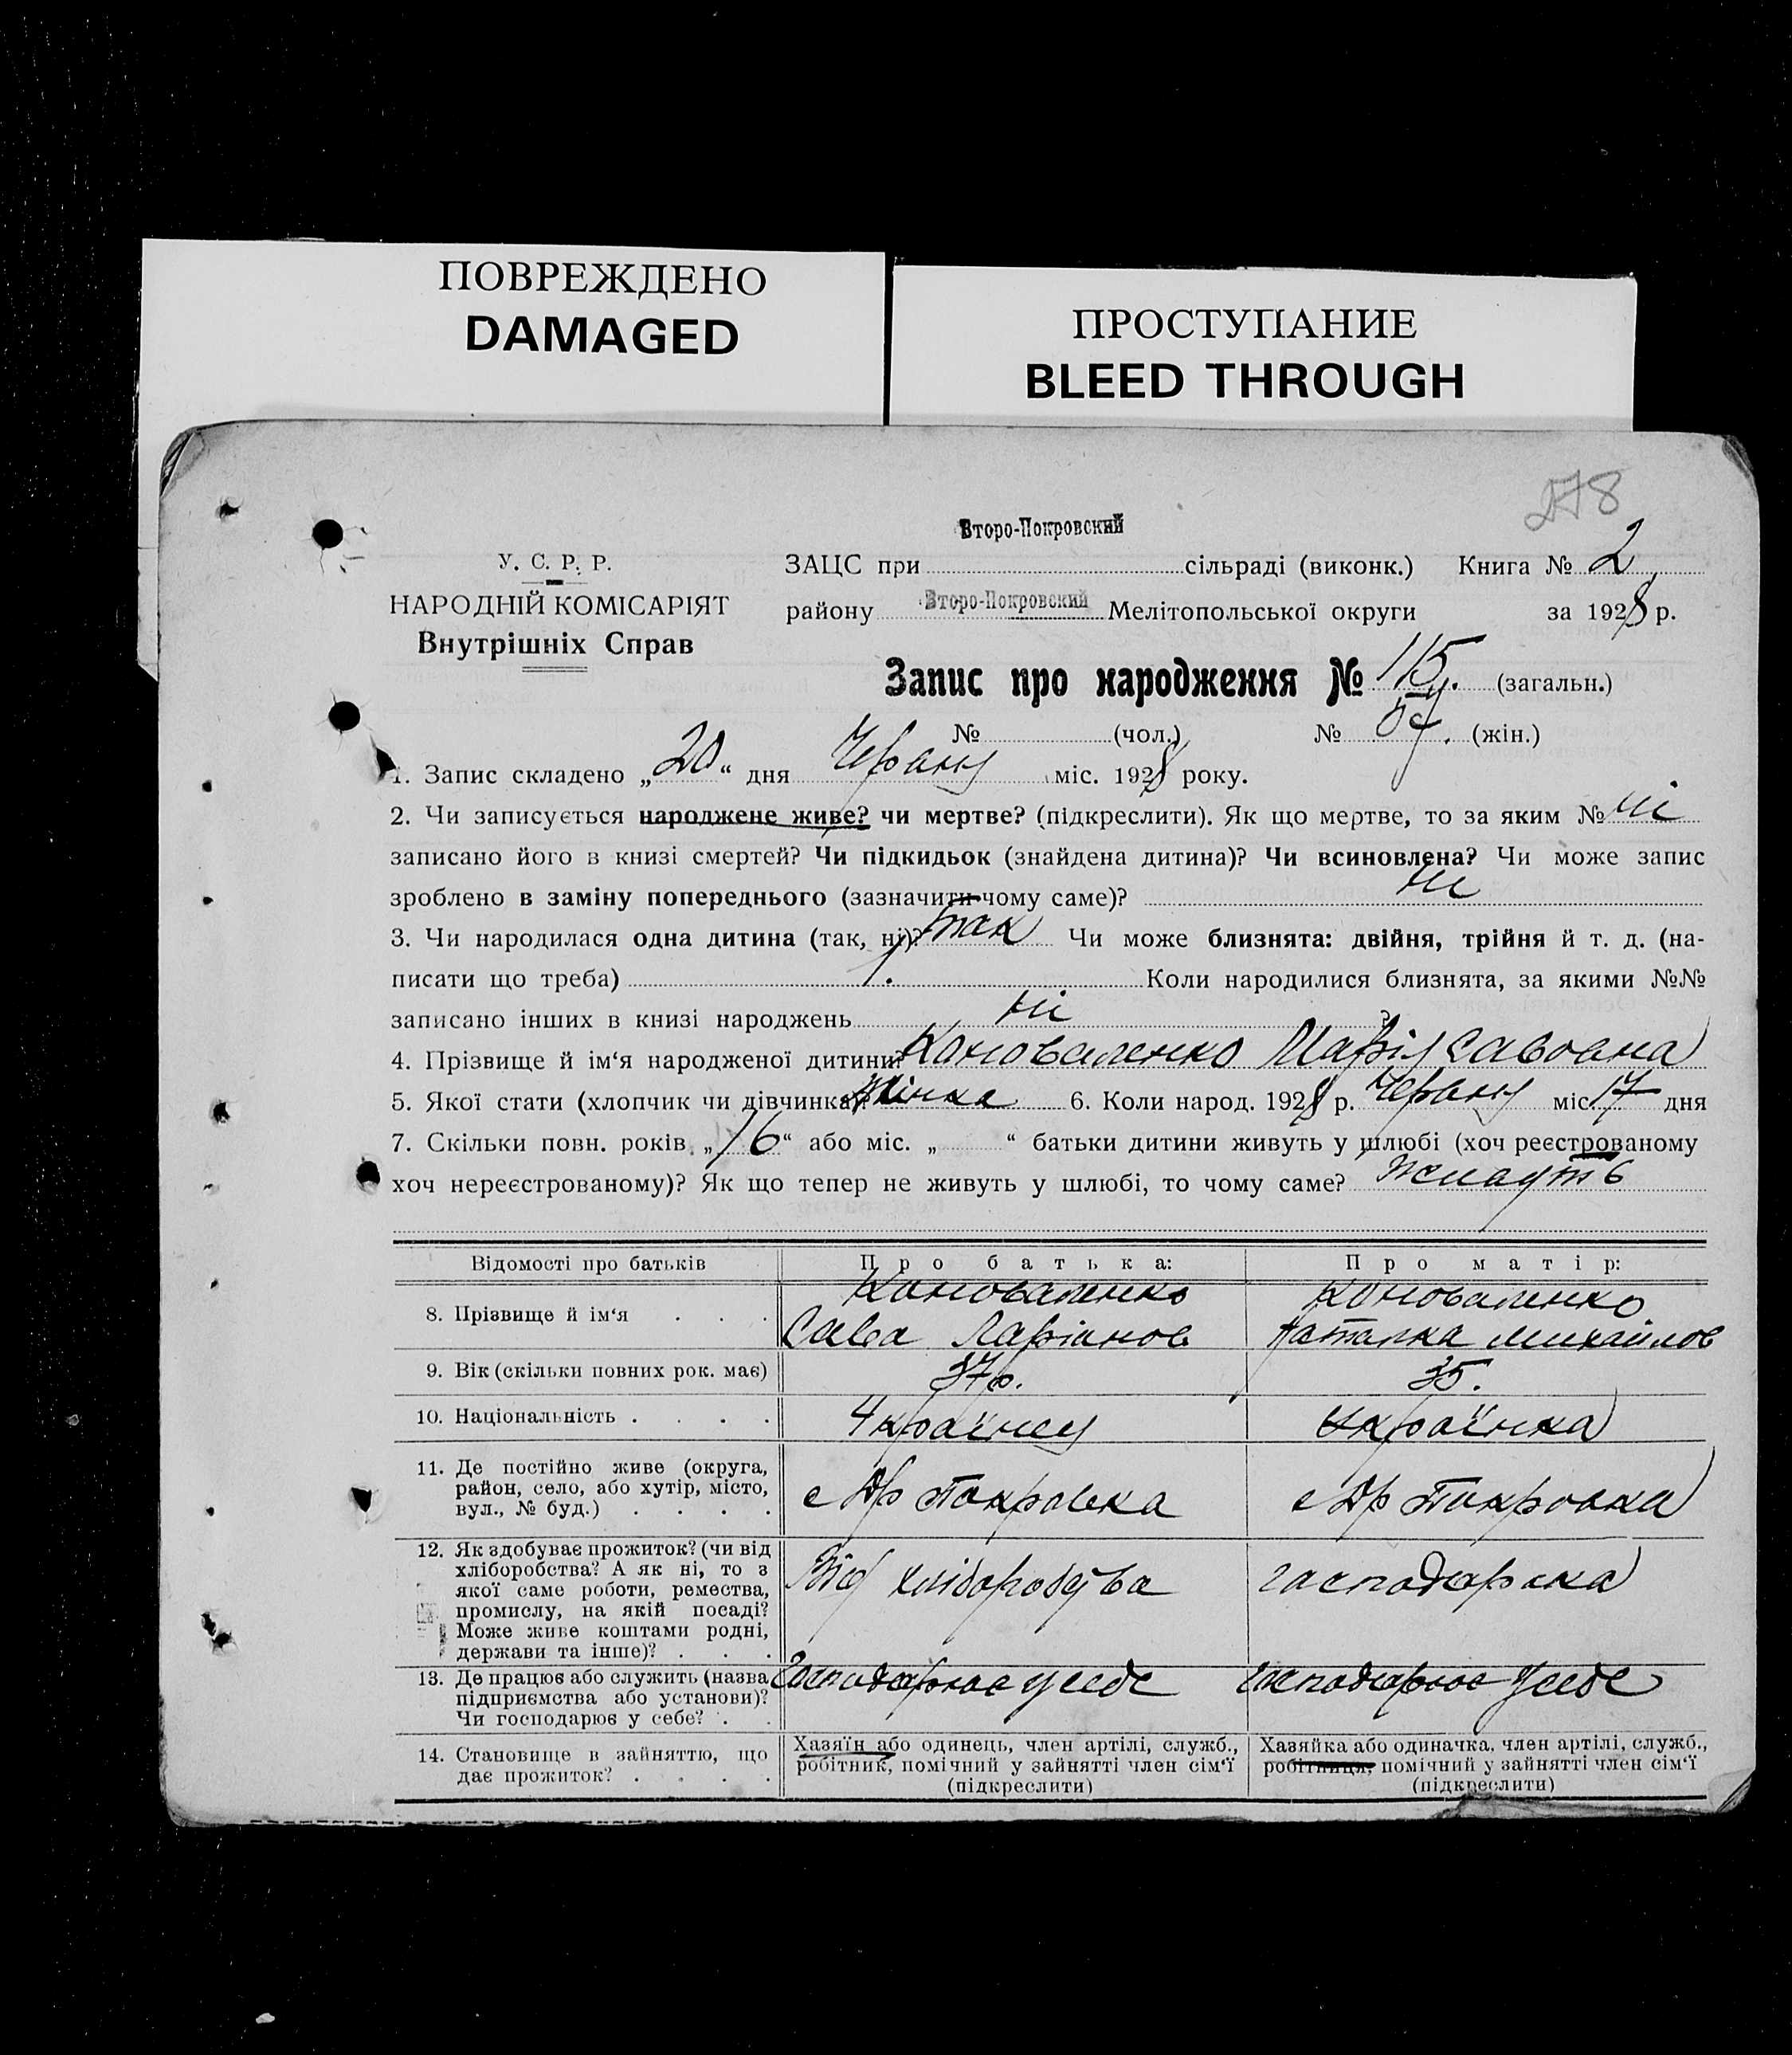 ПОВРЕЖДЕНО
DAMAGED
ПРОСТУПАНИЕ
BLEED THROUGH
278
Второ-Покровский
У. С. Р. Р.
ЗАЦС при сільраді (виконк.) Книга № 2
НАРОДНІЙ КОМІСАРІЯТ
району Второ-Покровский Мелітопольської округи за 1928 р.
Внутрішніх Справ
Запис про народження № 115 (загальн.)
№ (чол.) № (жін.)
1. Запис складено „20“ дня Червня міс. 1928 року.
2. Чи записується народжене живе? чи мертве? (підкреслити). Як що мертве, то за яким № ні
записано його в книзі смертей? Чи підкидьок (знайдена дитина)? Чи всиновлена? Чи може запис
зроблено в заміну попереднього (зазначити чому саме)? ні
3. Чи народилася одна дитина (так, ні)? так Чи може близнята: двійня, трійня й т. д. (на-
писати що треба) 1. Коли народилися близнята, за якими №№
записано інших в книзі народжень ні ?
4. Прізвище й ім‘я народженої дитини? Коноваленко Марія Савовна
5. Якої стати (хлопчик чи дівчинка)? Жінка 6. Коли народ. 1928 р. Червня міс. 17 дня
7. Скільки повн. років „16“ або міс. „ “ батьки дитини живуть у шлюбі (хоч реєстрованому
хоч нереєстрованому)? Як що тепер не живуть у шлюбі, то чому саме?
Відомості про батьків Про батька: Про матір:
Коноваленко Коноваленко
8. Прізвище й ім‘я . . . Сава Ларіанов Наталка Михайлов
9. Вік (скільки повних рок. має) 37 р. 35.
10. Національність . . . . Українец Українка
11. Де постійно живе (округа,
район, село, або хутір, місто,
вул., № буд.) . . . . с Др Покровка с Др Покровка
12. Як здобуває прожиток? (чи від
хліборобства? А як ні, то з
якої саме роботи, ремества, Від хліборобства господарска
промислу, на якій посаді?
Може живе коштами родні,
держави та інше)? . . .
13. Де працює або служить (назва Господарює у себе господарює у себе
підприємства або установи)?
Чи господарює у себе? . .
14. Становище в зайняттю, що
дає прожиток? . . . .
Хазяїн або одинець, член артілі, служб.,
робітник, помічний у зайнятті член сім‘ї
(підкреслити)
Хазяйка або одиначка, член артілі, служб.,
робітниця, помічний у зайнятті член сім‘ї
(підкреслити)